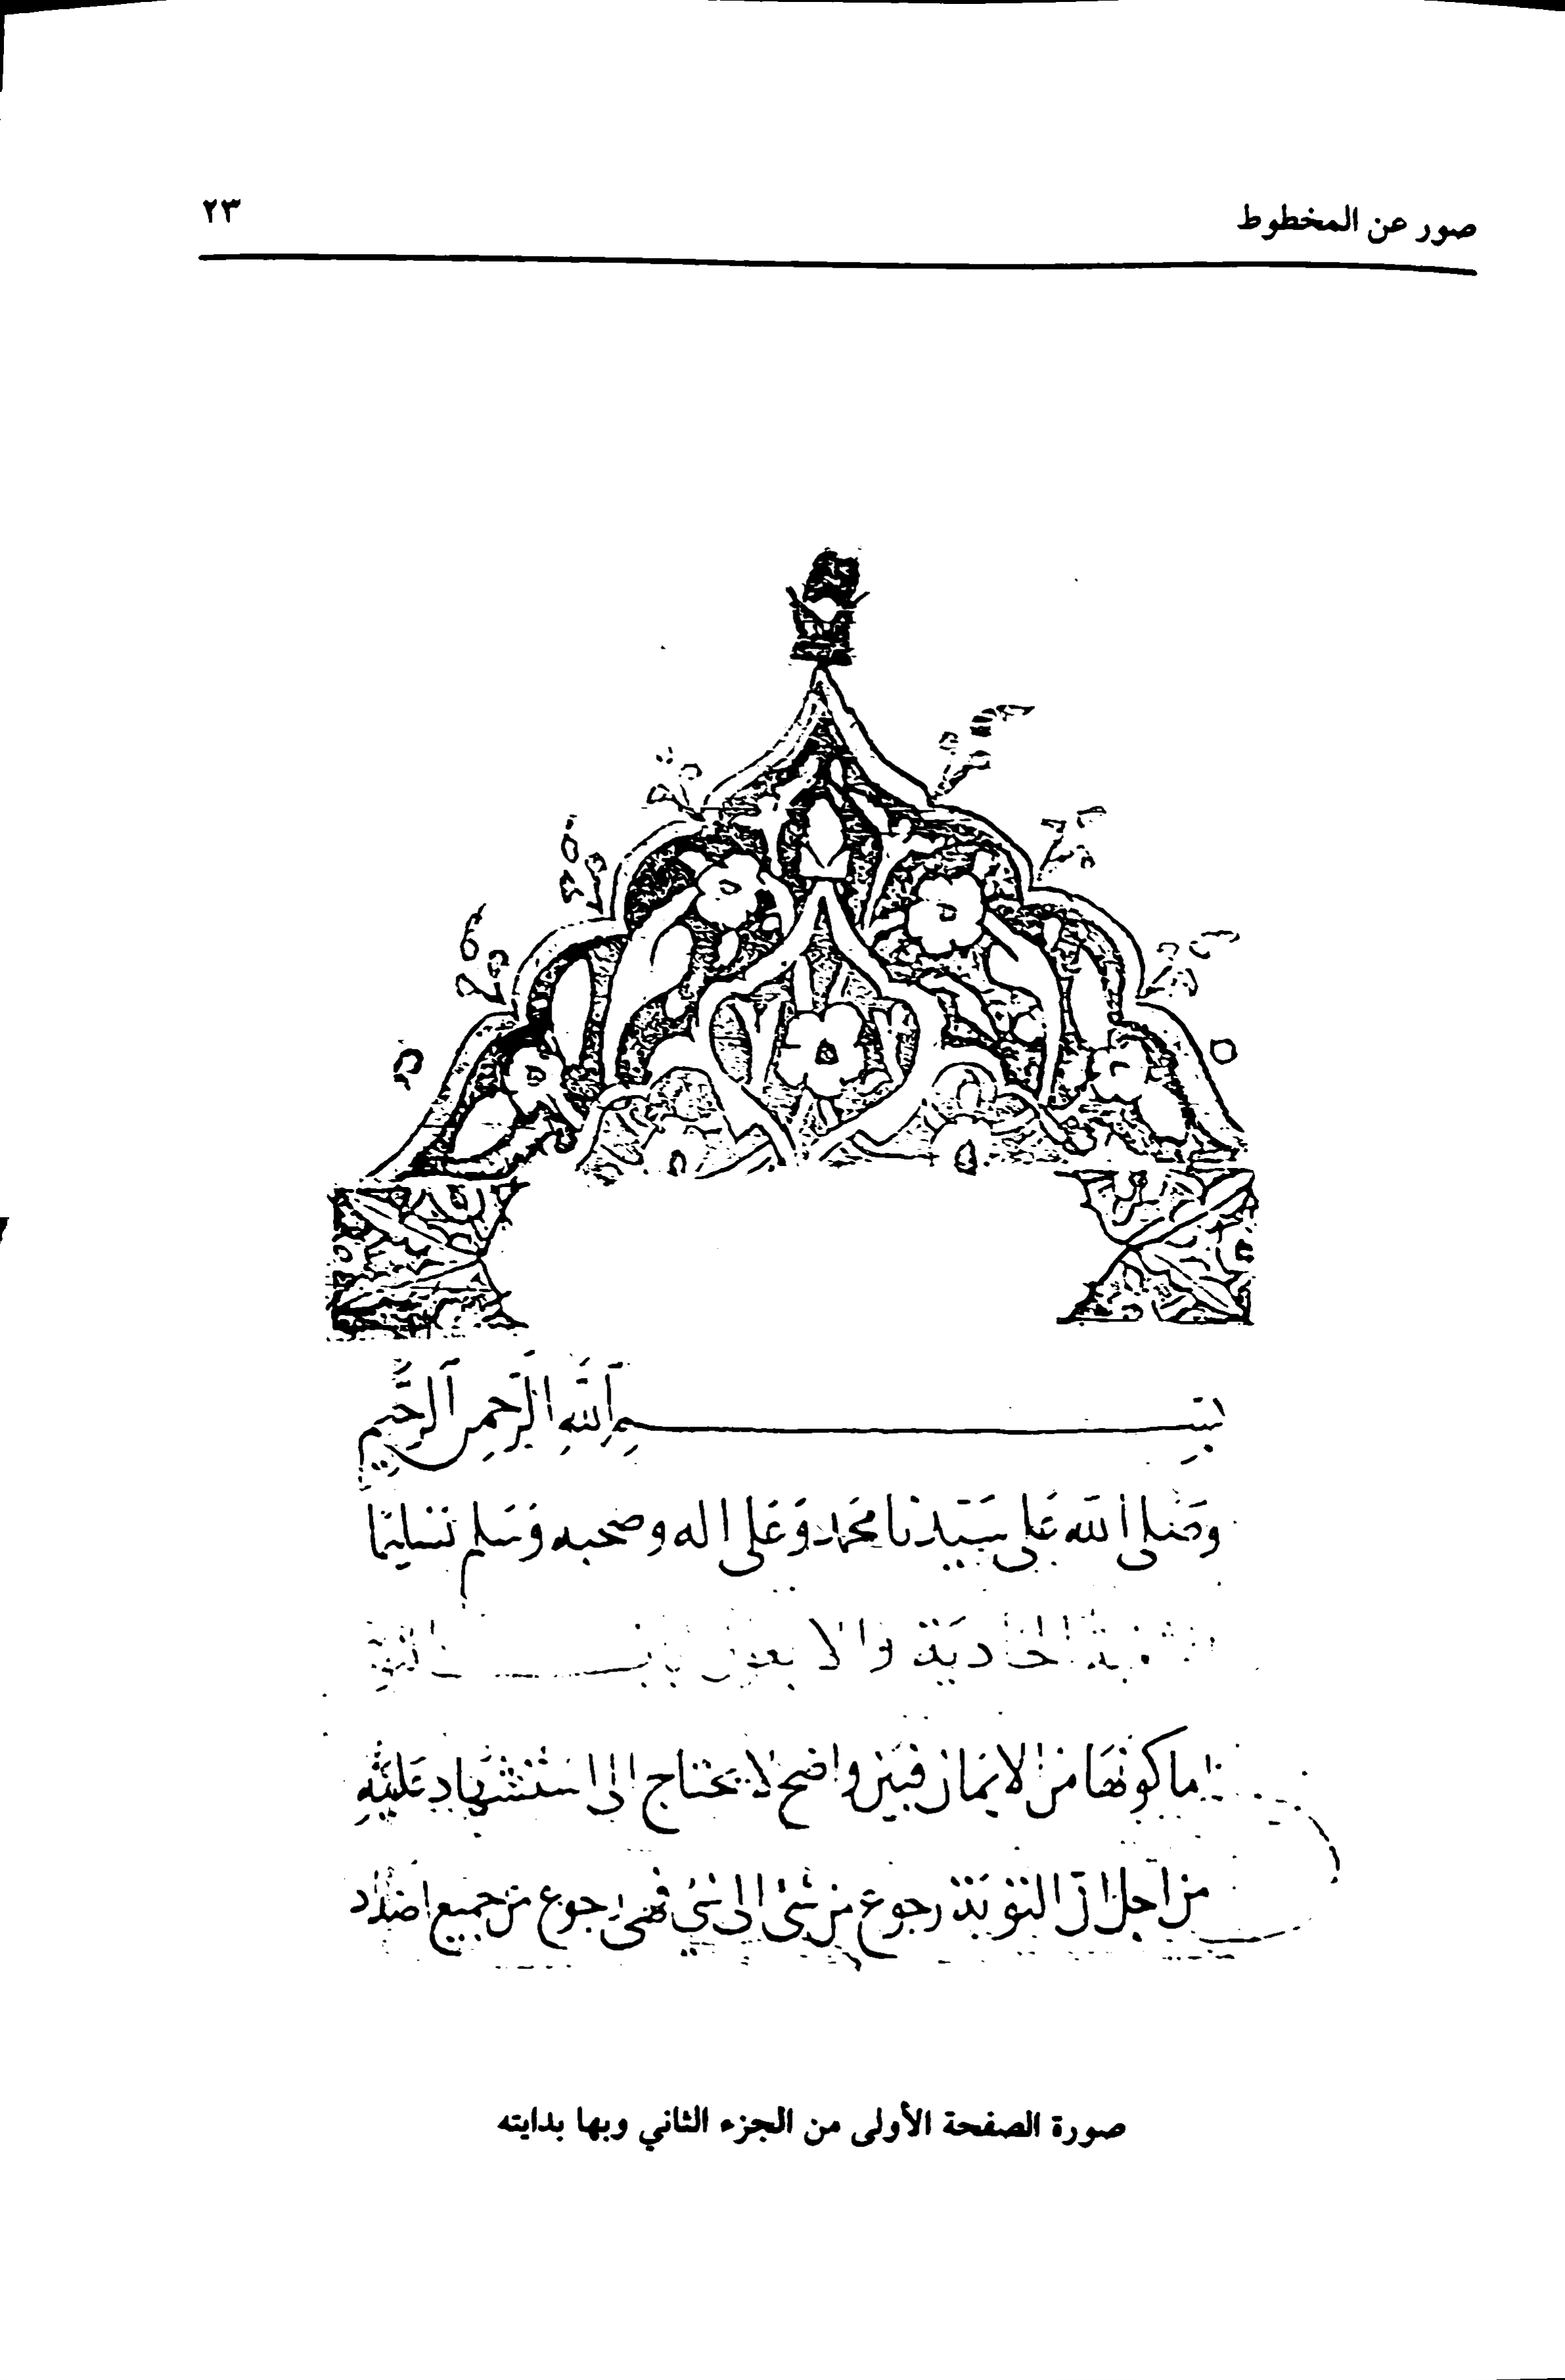 صور عن المخطوط
٢٣
بسم الله الرحمن الرحيم
وصلى الله على سيدنا محمد وعلى اله وصحبه وسلم تسليما
الحادية والاربعون
اما كونها من الايمان فبين واضح لا يحتاج الى استشهاد عليه
من اجل ان التوبة رجوع من شئ الى شئ فهى رجوع من جميع اضداد
صورة الصفحة الأولى من الجزء الثاني وبها بدايته